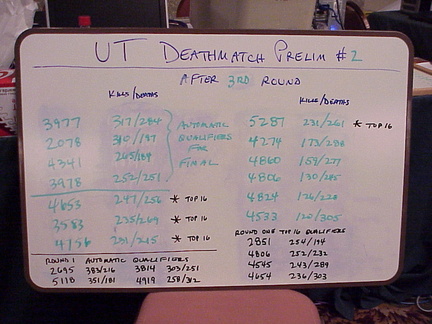 UT DEATHMATCH PRELIM #2
AFTER 3RD ROUND
KILLS/DEATHS
3977 317/284
2078 310/197
4341 265/189
3978 252/251
AUTOMATIC
QUALIFIERS
FOR
FINAL
4653 247/256 * TOP 16
3583 235/269 * TOP 16
4756 231/215 * TOP 16
KILLS/DEATHS
5287 231/261 * TOP 16
4274 173/288
4860 159/277
4806 130/285
4824 126/228
4533 120/305
ROUND 1 AUTOMATIC QUALIFIERS
2695 383/216 3814 303/251
5118 351/181 4919 258/312
ROUND ONE TOP 16 QUALIFIERS
2851 254/194
4806 252/232
4545 243/289
4654 236/303